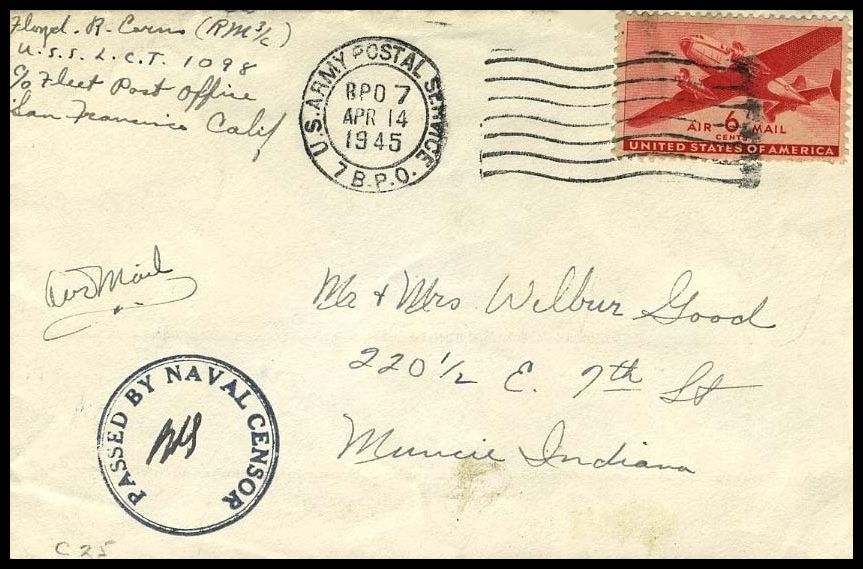 Floyd. R. Corns (RM3/c)
U.S.S. L.C.T. 1098
c/o Fleet Post Office
San Francisco Calif
U.S. ARMY POSTAL SERVICE
BPO 7
APR 14
1945
7 B.P.O.
AIR 6 MAIL
CENTS
UNITED STATES OF AMERICA
Air Mail
Mr & Mrs. Wilbur Good
220 1/2 E. 7th St
Muncie Indiana
PASSED BY NAVAL CENSOR
C 25